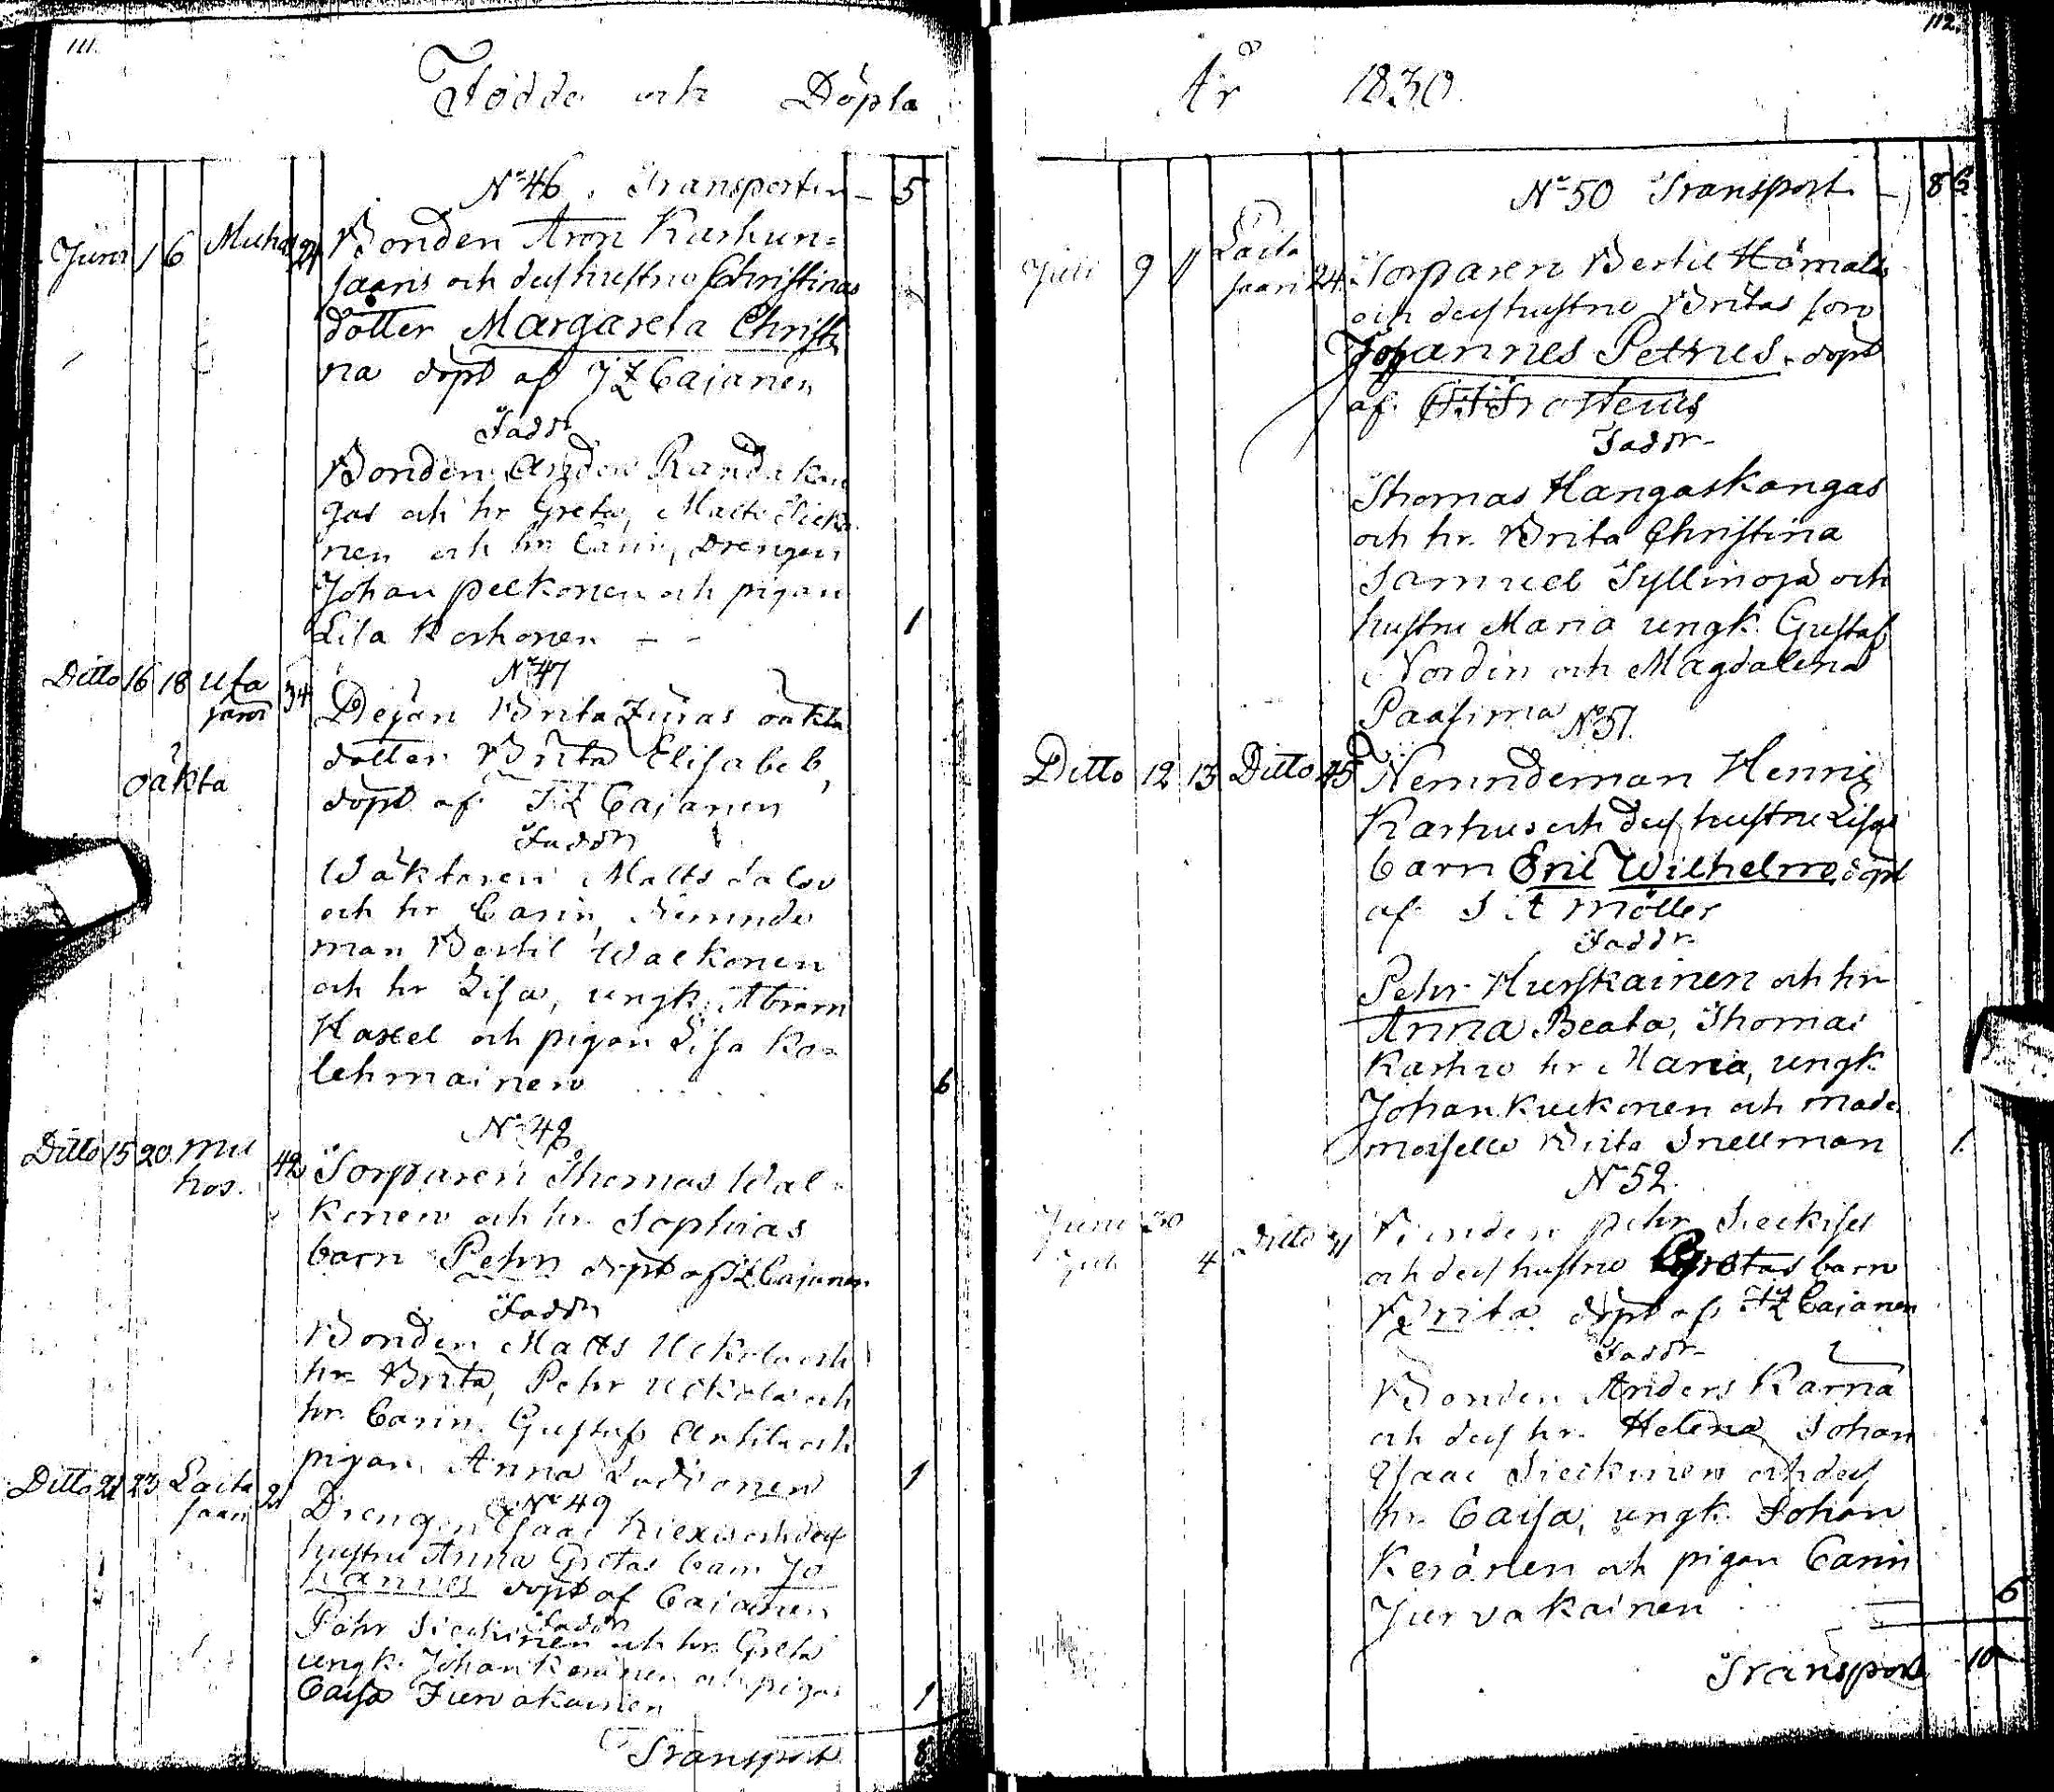 111.
Födde och Döpta
N:o 46. Transporten - 5
Juni 1 6 Muhos 24 Bonden Aron Karhun=
saaris och dess hustru Christinas
dotter Margareta Christi
na döpt af J Z Cajanen
Fadd:r
Bonden Anders Randakan
gas och hr Greta, Matts Sieki
nen och hr Carin, Drengen
Johan Pelkonen och pigan
Lisa Korhonen - - 1
N:o 47
Ditto 16 18 Uta 34
jarvi
oäkta
Pejan Brita Zuras oäkta
dotter Brita Elisabeb,
döpt af J Z Cajanen
Faddr
Wäktaren Matts Salo
och hr Carin, Nämnde
man Bertil Walkonen
och hr Lisa, ungk. Abram
Haxel och pigan Lisa Ko=
lehmainen 6
N:o 48
Ditto 15 20 Mu 42 Torparen Thomas Wal=
hos.
konen och hr. Sophias
barn Pehr döpt af J Z Cajanen
Faddr
Bonden Matts Uckola och
hr. Brita, Pehr Uckola och
hr. Carin, Gustaf Antila och
pigan Anna 1
N:o 49
Ditto 21 23 Laita
saari
Drengen Isaac Kiexis och dess
hustru Anna Gretas barn Jo
hannes döpt af Cajanen
Faddr
Pähr Siekinen och hr. Greta
ungk. Johan Keränen och pigan
Caisa Jurvakainen 1
Transport 8
112.
År 1830.
N:o 50 Transport - 8 6
Juli 9 11 Laita
saari 24 Torparen Bertil Hämälä
och dess hustru Britas son
Johannes Petrus, döpt
af Frosterus
Faddr
Thomas Hangaskangas
och hr. Brita Christina
Samuel Tyllinoja och
hustru Maria ungk. Gustaf
Nordin och Magdalena
Paasima
N:o 51.
Ditto 12 13 Ditto 45 Nemndeman Henric
Karhus och dess hustru Lisas
barn Eric Wilhelm, döpt
af J A Möller
Faddr
Pehr Hurskainen och hr
Anna Beata, Thomas
Karhu hr Maria, ungk.
Johan Kuckonen och made
moiselle Brita Snellman 1.
N:o 52.
Juni 30
Juli 4 Ditto 31 Bonden Pehr Sieckises
och dess hustru Gretas barn
Brita döpt af J Z Cajanen
Faddr
Bonden Anders Kärnä
och dess hr. Helena, Johan
Isaac Sieckinen och dess
hr. Caisa, ungk. Johan
Keränen och pigan Carin
Jurvakainen 6
Transport 10